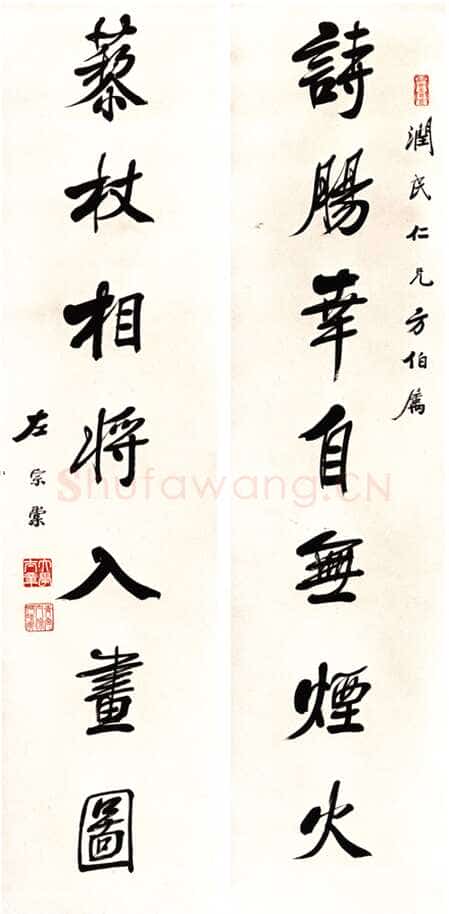 潤民仁兄方伯屬
詩腸幸自無煙火
藜杖相将入畫圖
左宗棠
Shufawang.CN